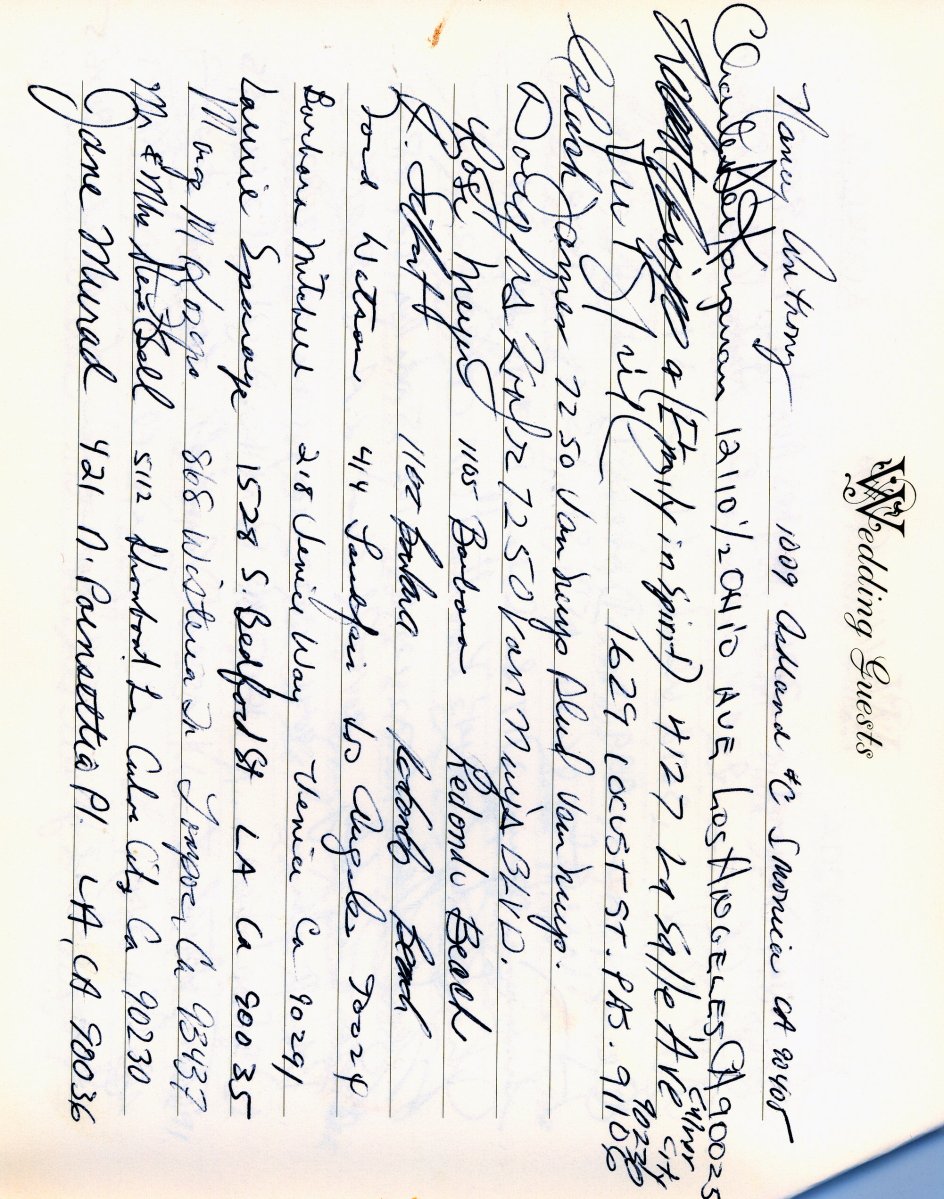 Wedding Guests
Nancy Anthony 1009 Ashland #C S Monica CA 90405
12110 1/2 OHIO AVE LOS ANGELES CA 90025
(Emily in spirit) 4127 La Salle Ave Culver City 90230
1629 LOCUST ST. PAS. 91106
James 7250 Van Nuys Blvd Van Nuys.
Douglas 7250 Van Nuys BLVD.
Rose Meyer 1105 Barbara Redondo Beach
R. 1102 Barbara Redondo Beach
Todd Watson 414 Los Angeles 90024
Barbara Mitchell 218 Venice Way Venice Ca 90291
Laurie 1528 S. Bedford St LA Ca 90035
868 Wisteria Lompoc, Ca 93437
Mr & Mrs Steve Bell 5112 Ln Culver City Ca 90230
Jane Murad 421 N. Poinsettia Pl. LA, CA 90036